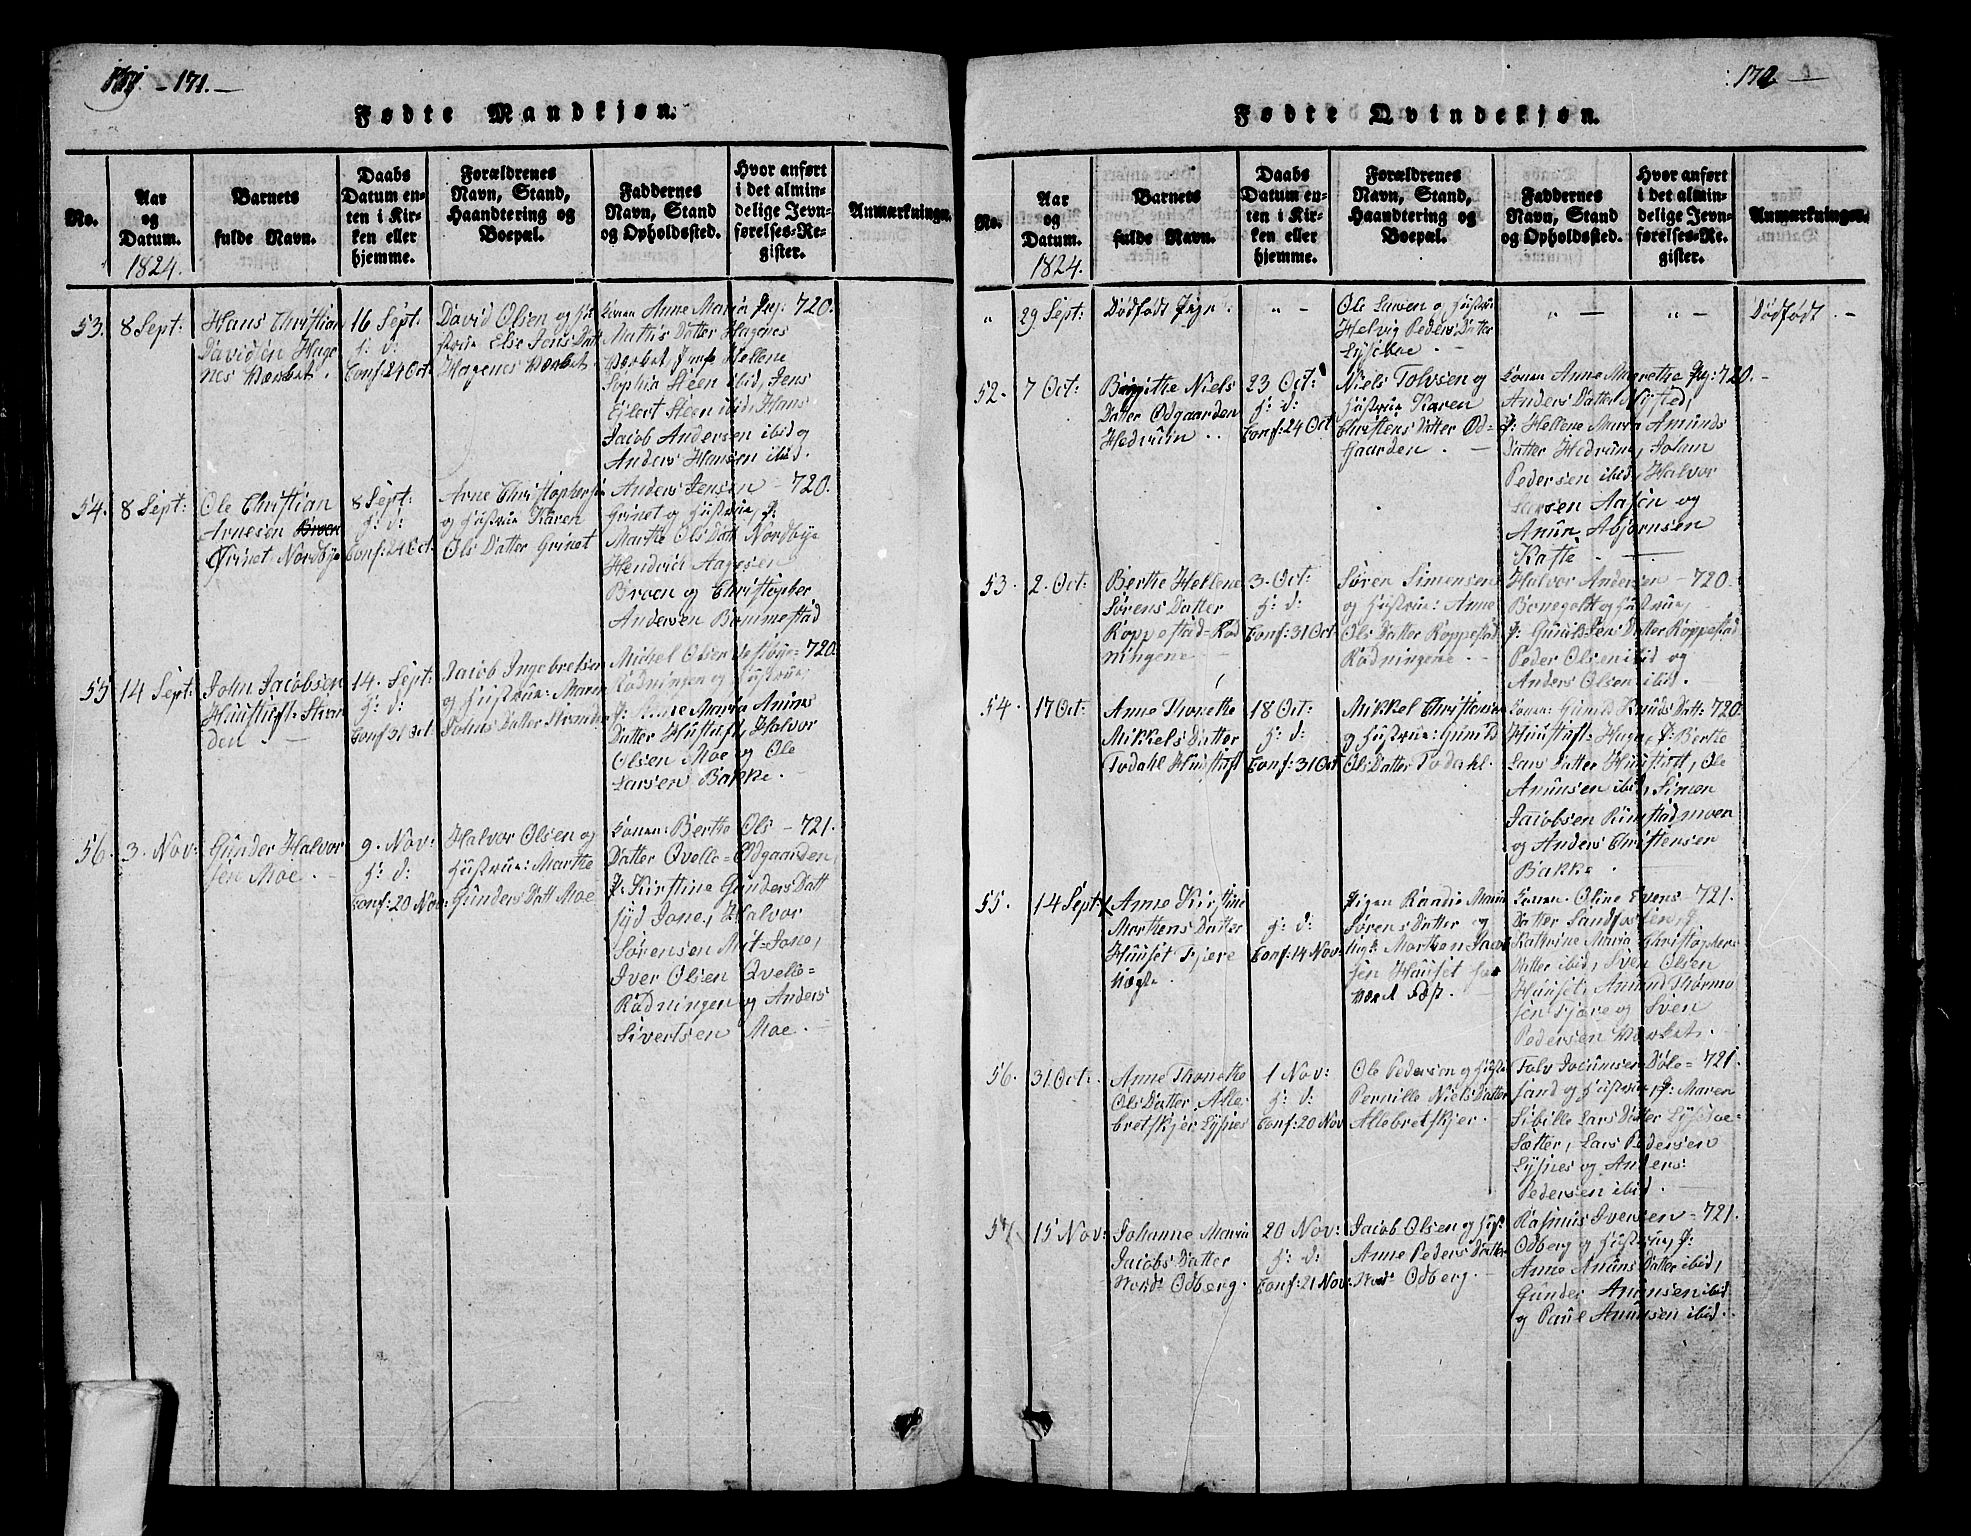 - 171. -
Fødte Mandkjøn.
No.
Aar
og
Datum.
1824.
Barnets
fulde Navn.
Daabs
Datum en-
ten i Kir-
ken eller
hjemme.
Forældrenes
Navn, Stand,
Haandtering og
Boepæl.
Faddernes
Navn, Stand
og Opholdssted.
Hvor anført
i det almin-
delige Jevn-
førelses-Re-
gister.
Anmærkninger.
53.
8 Sept:
Hans Christian
Davidsen Hage
nes Værket.
16 Sept:
h: d:
Conf: 24 Oct.
David Olsen og hu
strue Else Jens Datt
Hagenes Værket.
Konen Anne Maria
Mathis Datter Hagenes
Værket, Hellene
Sophia Steen ibid, Jens
Eilert Steen ibid, Hans
Jacob Andersen ibid og
Anders Hansen ibid.
720.
54.
8 Sept:
Ole Christian
Arnesen Broen
Grinet Nordbye
8 Sept:
h: d:
Conf: 24 Oct.
Arne Christophersen
og Hustrue Karen
Ols Datter Grinet
Anders Jensen
Grinet og Hustrue, P:
Marthe Ols Datt Nordbye
Hendrich Aagesen
Broen og Christopher
Andersen Bommestad
720.
55
14 Sept:
John Jacobsen
Huustuft-Stran
den.
14. Sept:
h: d:
Conf 31 Oct:
Jacob Ingebretsen
og Hustrue: Maren
Johns Datter Stranden
Michel Olsen Vestbye
Rødningen og Hustrue,
P: Anne Maria Amuns
Datter Hustuft, Halvor
Olsen Moe og Ole
Larsen Bakke.
720.
56.
3. Nov:
Gunder Halvor
sen Moe.
9. Nov:
h: d:
Conf: 20 Nov:
Halvor Olsen og
Hustrue: Marthe
Gunders Datt Moe
Konen: Berthe Ols
Datter Qvelle-Odgaarden,
P: Kirstine Gunders Datt
Syd Jone, Halvor
Sørensen Mit-Jone,
Iver Olsen Qvelle-
Rødningen og Anders
Sivertsen Moe.
721.
172 -
Fødte Qvindekjøn.
No.
Aar
og
Datum.
1824.
Barnets
fulde Navn.
Daabs
Datum en-
ten i Kir-
ken eller
hjemme.
Forældrenes
Navn, Stand,
Haandtering og
Boepæl.
Faddernes
Navn, Stand
og Opholdssted.
Hvor anført
i det almin-
delige Jevn-
førelses-Re-
gister.
Anmærkninger.
"
29 Sept:
Dødfødt Pige.
" -
Ole Larsen og Hustrue
Helvig Peders Datter
Lyseboe.
" -
" -
Dødfødt.
52.
7 Oct:
Birgithe Niels
Datter Odgaarden
Hedrum.
23 Oct:
h: d:
Conf: 24 Oct
Niels Tolvsen og
Hustrue Karen
Christens Datter Od-
gaarden.
Konen Anne Marethe
Anders Datter Nysted,
P: Hellene Maria Amunds
Datter Hedrum, Johan
Pedersen ibid, Halvor
Larsen Aasen og
Amun Abjørnsen
Kaste.
720.
53.
2. Oct:
Berthe Hellene
Sørens Datter
Roppestad-Rød
ningene
3. Oct:
h: d:
Conf: 31 Oct
Søren Simensen
og Hustrue: Anne
Ols Datter Roppestad
Rødningene.
Halvor Andersen
Bonegolt og Hustrue,
P: Gunild Jens Datter Roppestad
Peder Olsen ibid og
Anders Olsen ibid.
720.
54.
17 Oct:
Anne Thonette
Mikkels Datter
Tvdahl Huustuft
18 Oct:
h: d:
Conf: 31 Oct
Mikkel Christensen
og Hustrue: Gunild
Ols Datter Tvdahl.
Konen: Gunild Knuds Datt:
Huustuft-Hage, P: Berthe
Lars Datter Huustuft, Ole
Amunsen ibid, Simen
Jacobsen Rimstadmoen
og Anders Christensen
Bakke.
720.
55.
14 Sept:
Anne Kirstine
Morthens Datter
Huuset Fjære
h: d:
Conf: 14 Nov:
Pigen Randie Maria
Sørens Datter og
Ungk: Morthen Jacob
sen Huuset
Konen Oline Evens
Datter Sandfosten, P:
Kathrine Maria Christophers
Datter ibid, Sven Olsen
Huuset, Amund Thormo
sen Fjære og Sven
Pedersen Værket.
721.
56.
31 Oct:
Anne Thonethe
Ols Datter, Alle-
bretskjer, Lysnes
1 Nov:
h: d:
Conf: 20 Nov
Ole Pedersen og Hustr
Pernille Niels Datter
Allebretskjer.
Tolv Jocumsen Døle-
sand og Hustrue, P: Maren
Sibille Lars Datter Lyseboe-
Sætter, Lars Pedersen
Lysnes og Anders
Pedersen ibid.
721.
57.
15 Nov:
Johanne Maria
Jacobs Datter
Nord Odberg.
20 Nov:
h: d:
Conf: 21 Nov:
Jacob Olsen og Hus:
Anne Peders Datter
Nord Odberg.
Rasmus Iversen
Odberg og Hustrue, P:
Anne Amuns Datter ibid,
Gunder Amunsen ibid
og Paul Amunsen ibid.
721.